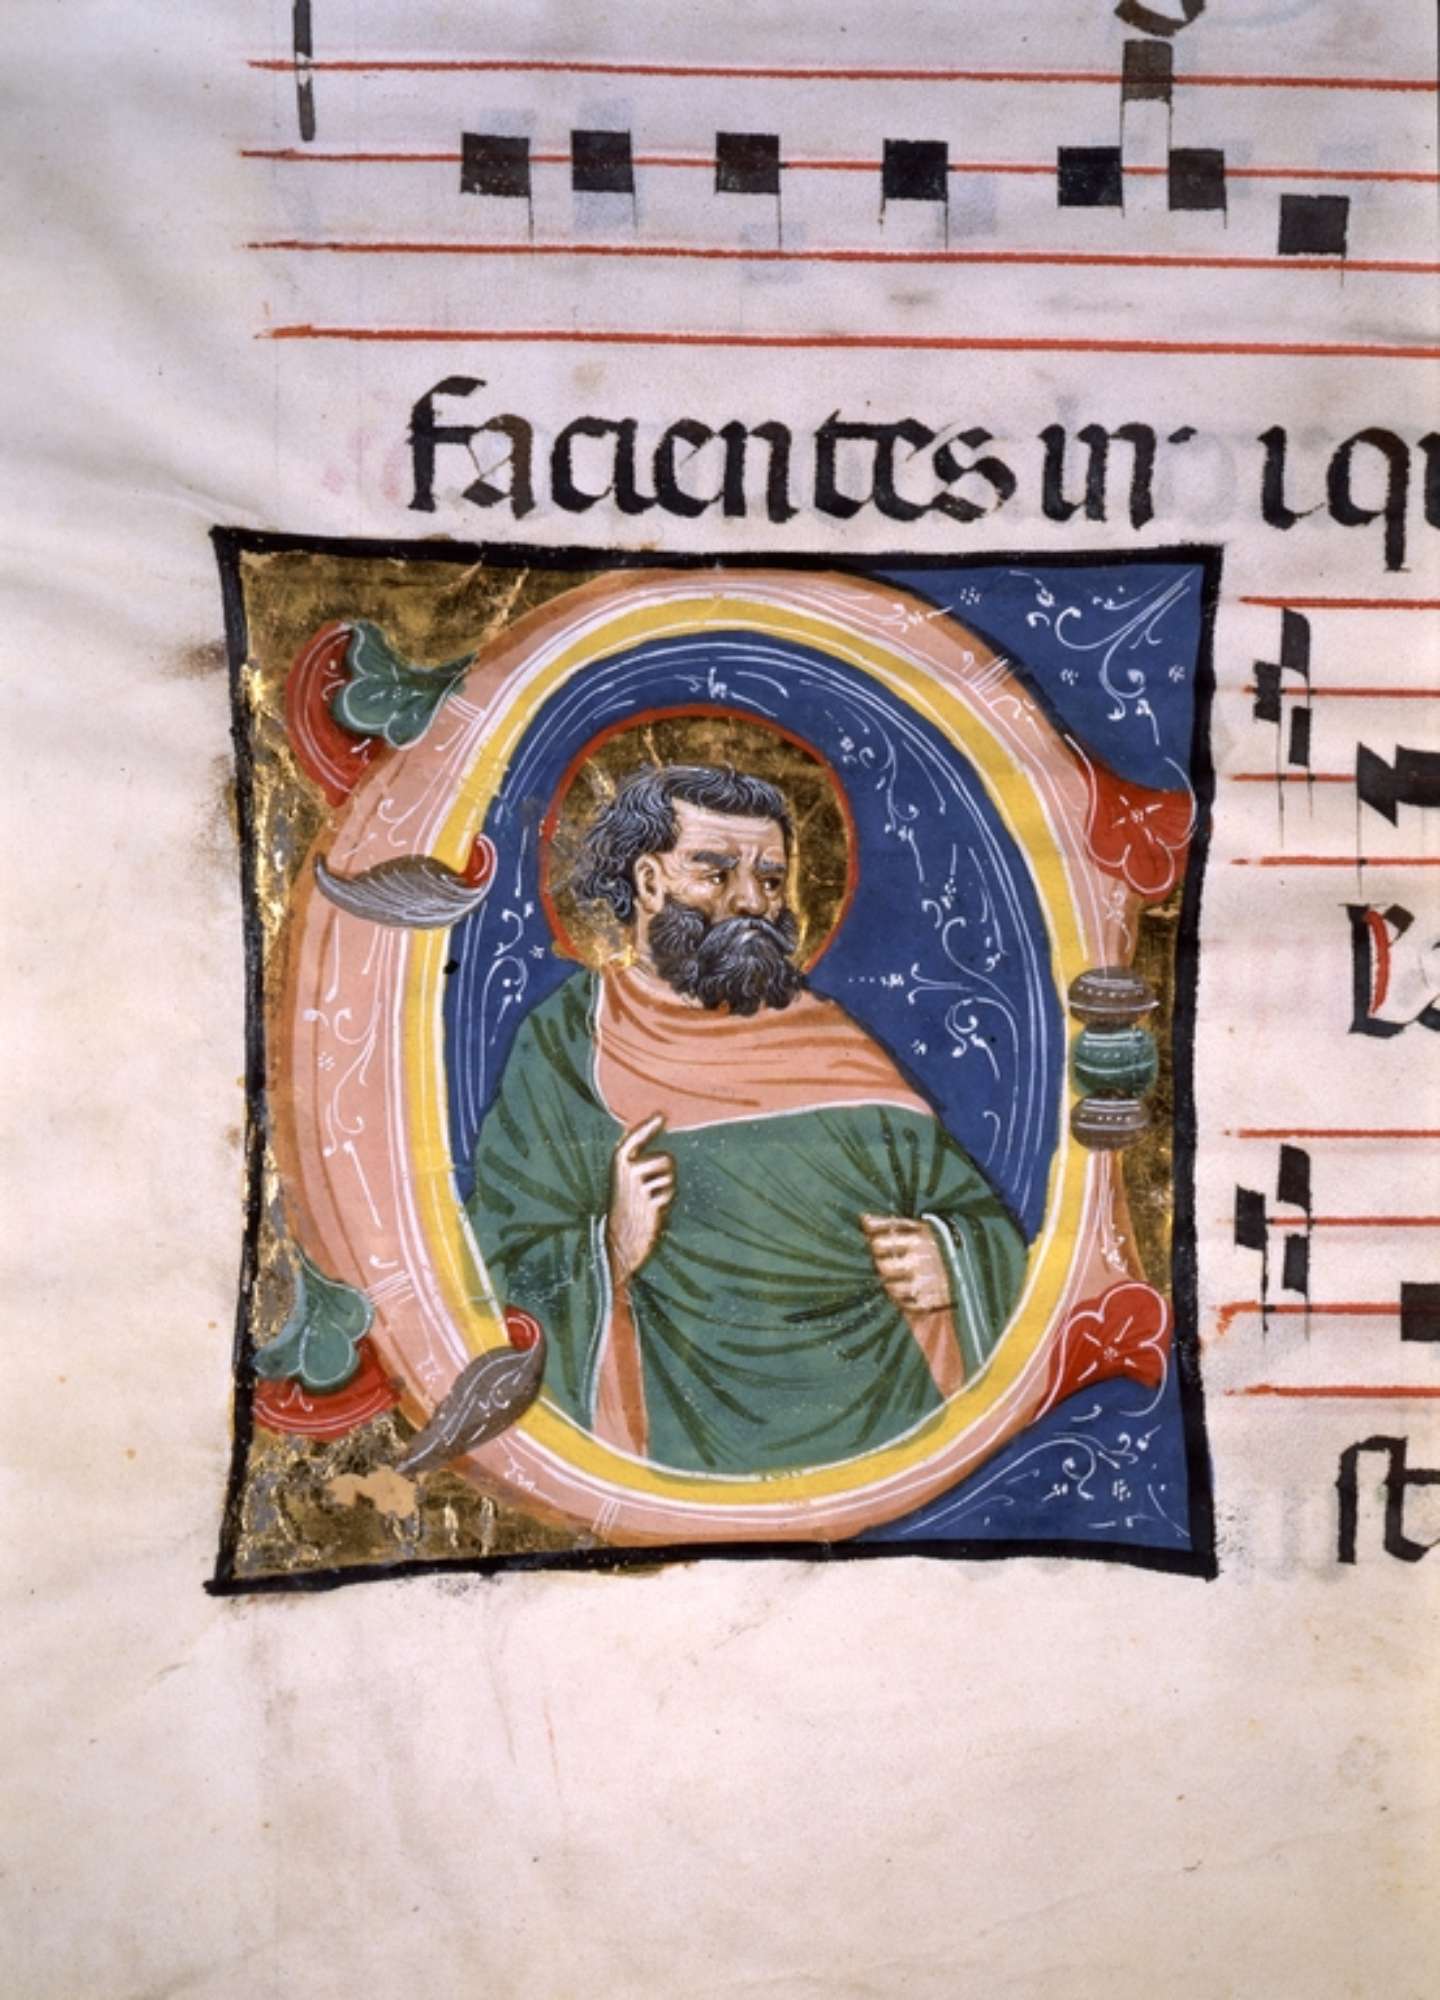 facientes in iqu
La
st